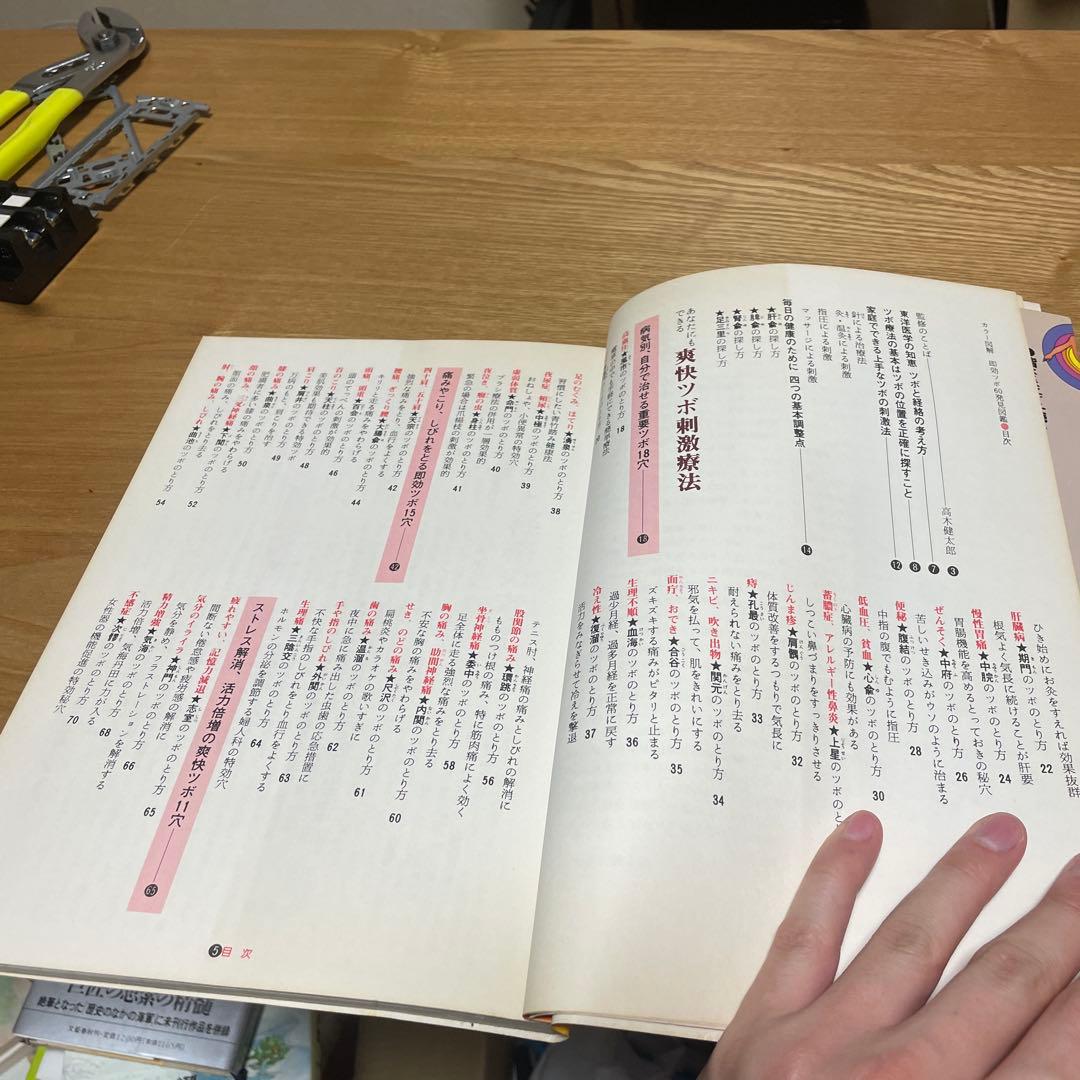 カラー図解 即効ツボ60発見図鑑●目次
監修のことば 高木健太郎 3
東洋医学の知恵 ツボと経絡の考え方 7
ツボ療法の基本はツボの位置を正確に探すこと 8
家庭でできる上手なツボの刺激法 12
針による治療法
灸・温灸による刺激
指圧による刺激
マッサージによる刺激
毎日の健康のために 四つの基本調整点 14
★肝兪の探し方
★脾兪の探し方
★腎兪の探し方
★足三里の探し方
あなたにもできる 爽快ツボ刺激療法
病気別・自分で治せる重要ツボ18穴 18
ツボのとり方 18
ひき始めにお灸をすえれば効果抜群
肝臓病★期門のツボのとり方 22
根気よく気長に続けることが肝要
慢性胃痛★中脘のツボのとり方 24
胃腸機能を高めるとっておきの秘穴
ぜんそく★中府のツボのとり方 26
苦しいせき込みがウソのように治まる
便秘★腹結のツボのとり方 28
中指の腹でもむように指圧
低血圧、貧血★心兪のツボのとり方 30
心臓病の予防にも効果がある
蓄膿症、アレルギー性鼻炎★上星のツボのと
しつっこい鼻づまりをすっきりさせる
じんま疹★肩髃のツボのとり方 32
体質改善をするつもりで気長に
痔★孔最のツボのとり方 33
耐えられない痛みをとり去る
ニキビ、吹き出物★関元のツボのとり方 34
邪気を払って、肌をきれいにする
面疔、おでき★合谷のツボのとり方 35
ズキズキする痛みがピタリと止まる
生理不順★血海のツボのとり方 36
過少月経、過多月経を正常に戻す
冷え性★復溜のツボのとり方 37
活力をみなぎらせて冷えを撃退
足のむくみ、ほてり★湧泉のツボのとり方 38
習慣にしたい青竹踏み健康法
夜尿症、頻尿★中極のツボのとり方 39
おねしょや、小便異常の特効穴
虚弱体質★命門のツボのとり方 40
ブラシ療法の併用が一層効果的
夜泣き、癇の虫★身柱のツボのとり方 41
緊急の場合は爪楊枝の刺激が効果的
痛みやこり、しびれをとる即効ツボ15穴 42
四十肩、五十肩★天宗のツボのとり方 42
強烈な痛みをとり、血行をよくする
腰痛、ぎっくり腰★大腸兪のツボのとり方 44
キリッと走る痛みをやわらげる
頭痛★百会のツボのとり方 46
頭のてっぺんの刺激が効果的
首のこり★天柱のツボのとり方
美肌効果も期待できる特効穴
肩こり★肩井のツボのとり方 48
万病のもと
膝の痛み★曲泉のツボのとり方 49
肥満者に多い膝の痛みを治す
顔の痛み★下関のツボのとり方 50
肘、腕の痛み、しびれ★曲池のツボのとり方 52
54
テニス肘、神経痛の痛みとしびれの解消に
股関節の痛み★環跳のツボのとり方
もものつけ根の痛み、特に筋肉痛によく効く
坐骨神経痛★委中のツボのとり方 56
足全体に走る強烈な痛みをとる
胸の痛み、肋間神経痛★内関のツボのとり方 58
不安な胸の痛みをとり去る
せき、のどの痛み★尺沢のツボのとり方 60
扁桃炎やカラオケの歌いすぎに
歯の痛み★温溜のツボのとり方 61
夜中に急に痛み出した虫歯の応急措置に
手や指のしびれ★外関のツボのとり方 62
不快な手指のしびれをとり血行をよくする
生理痛★三陰交のツボのとり方 63
ホルモンの分泌を調節する婦人科の特効穴 64
ストレス解消、活力倍増の爽快ツボ11穴 65
疲れやすい、記憶力減退★志室のツボのとり方 65
間断ない倦怠感や疲労感の解消に
気分のイライラ★神門のツボのとり方 66
気分を静め、フラストレーションを解消する
精力増強★腎兪のツボのとり方 68
活力倍増、気海丹田に力が入る
不感症★次髎のツボのとり方 70
女性器の機能促進の特効穴
5 目次
絶筆となった「歴史のなかの海軍」に未刊行作品を併録
文藝春秋刊・定価1200円